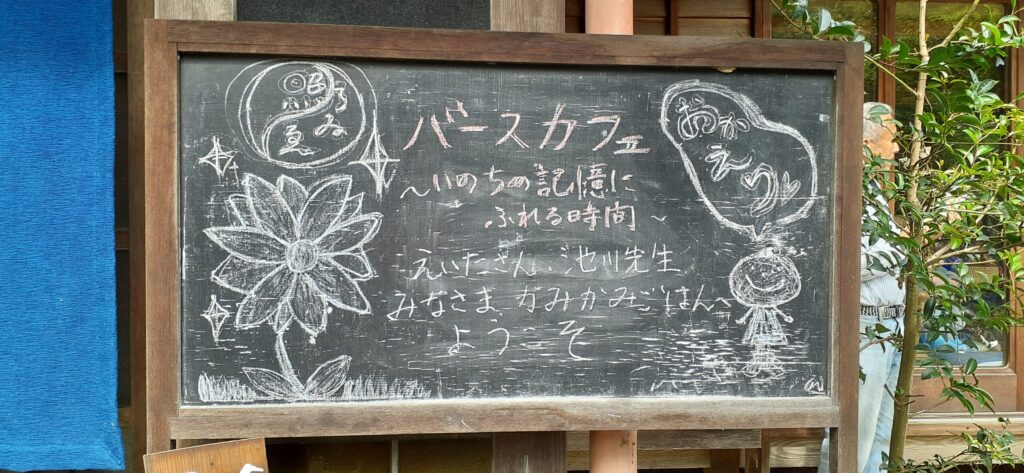 バースカフェ
～いのちの記憶に
ふれる時間～
えいたさん、池川先生
みなさま、かみかみごはんへ
ようこそ
おかえり